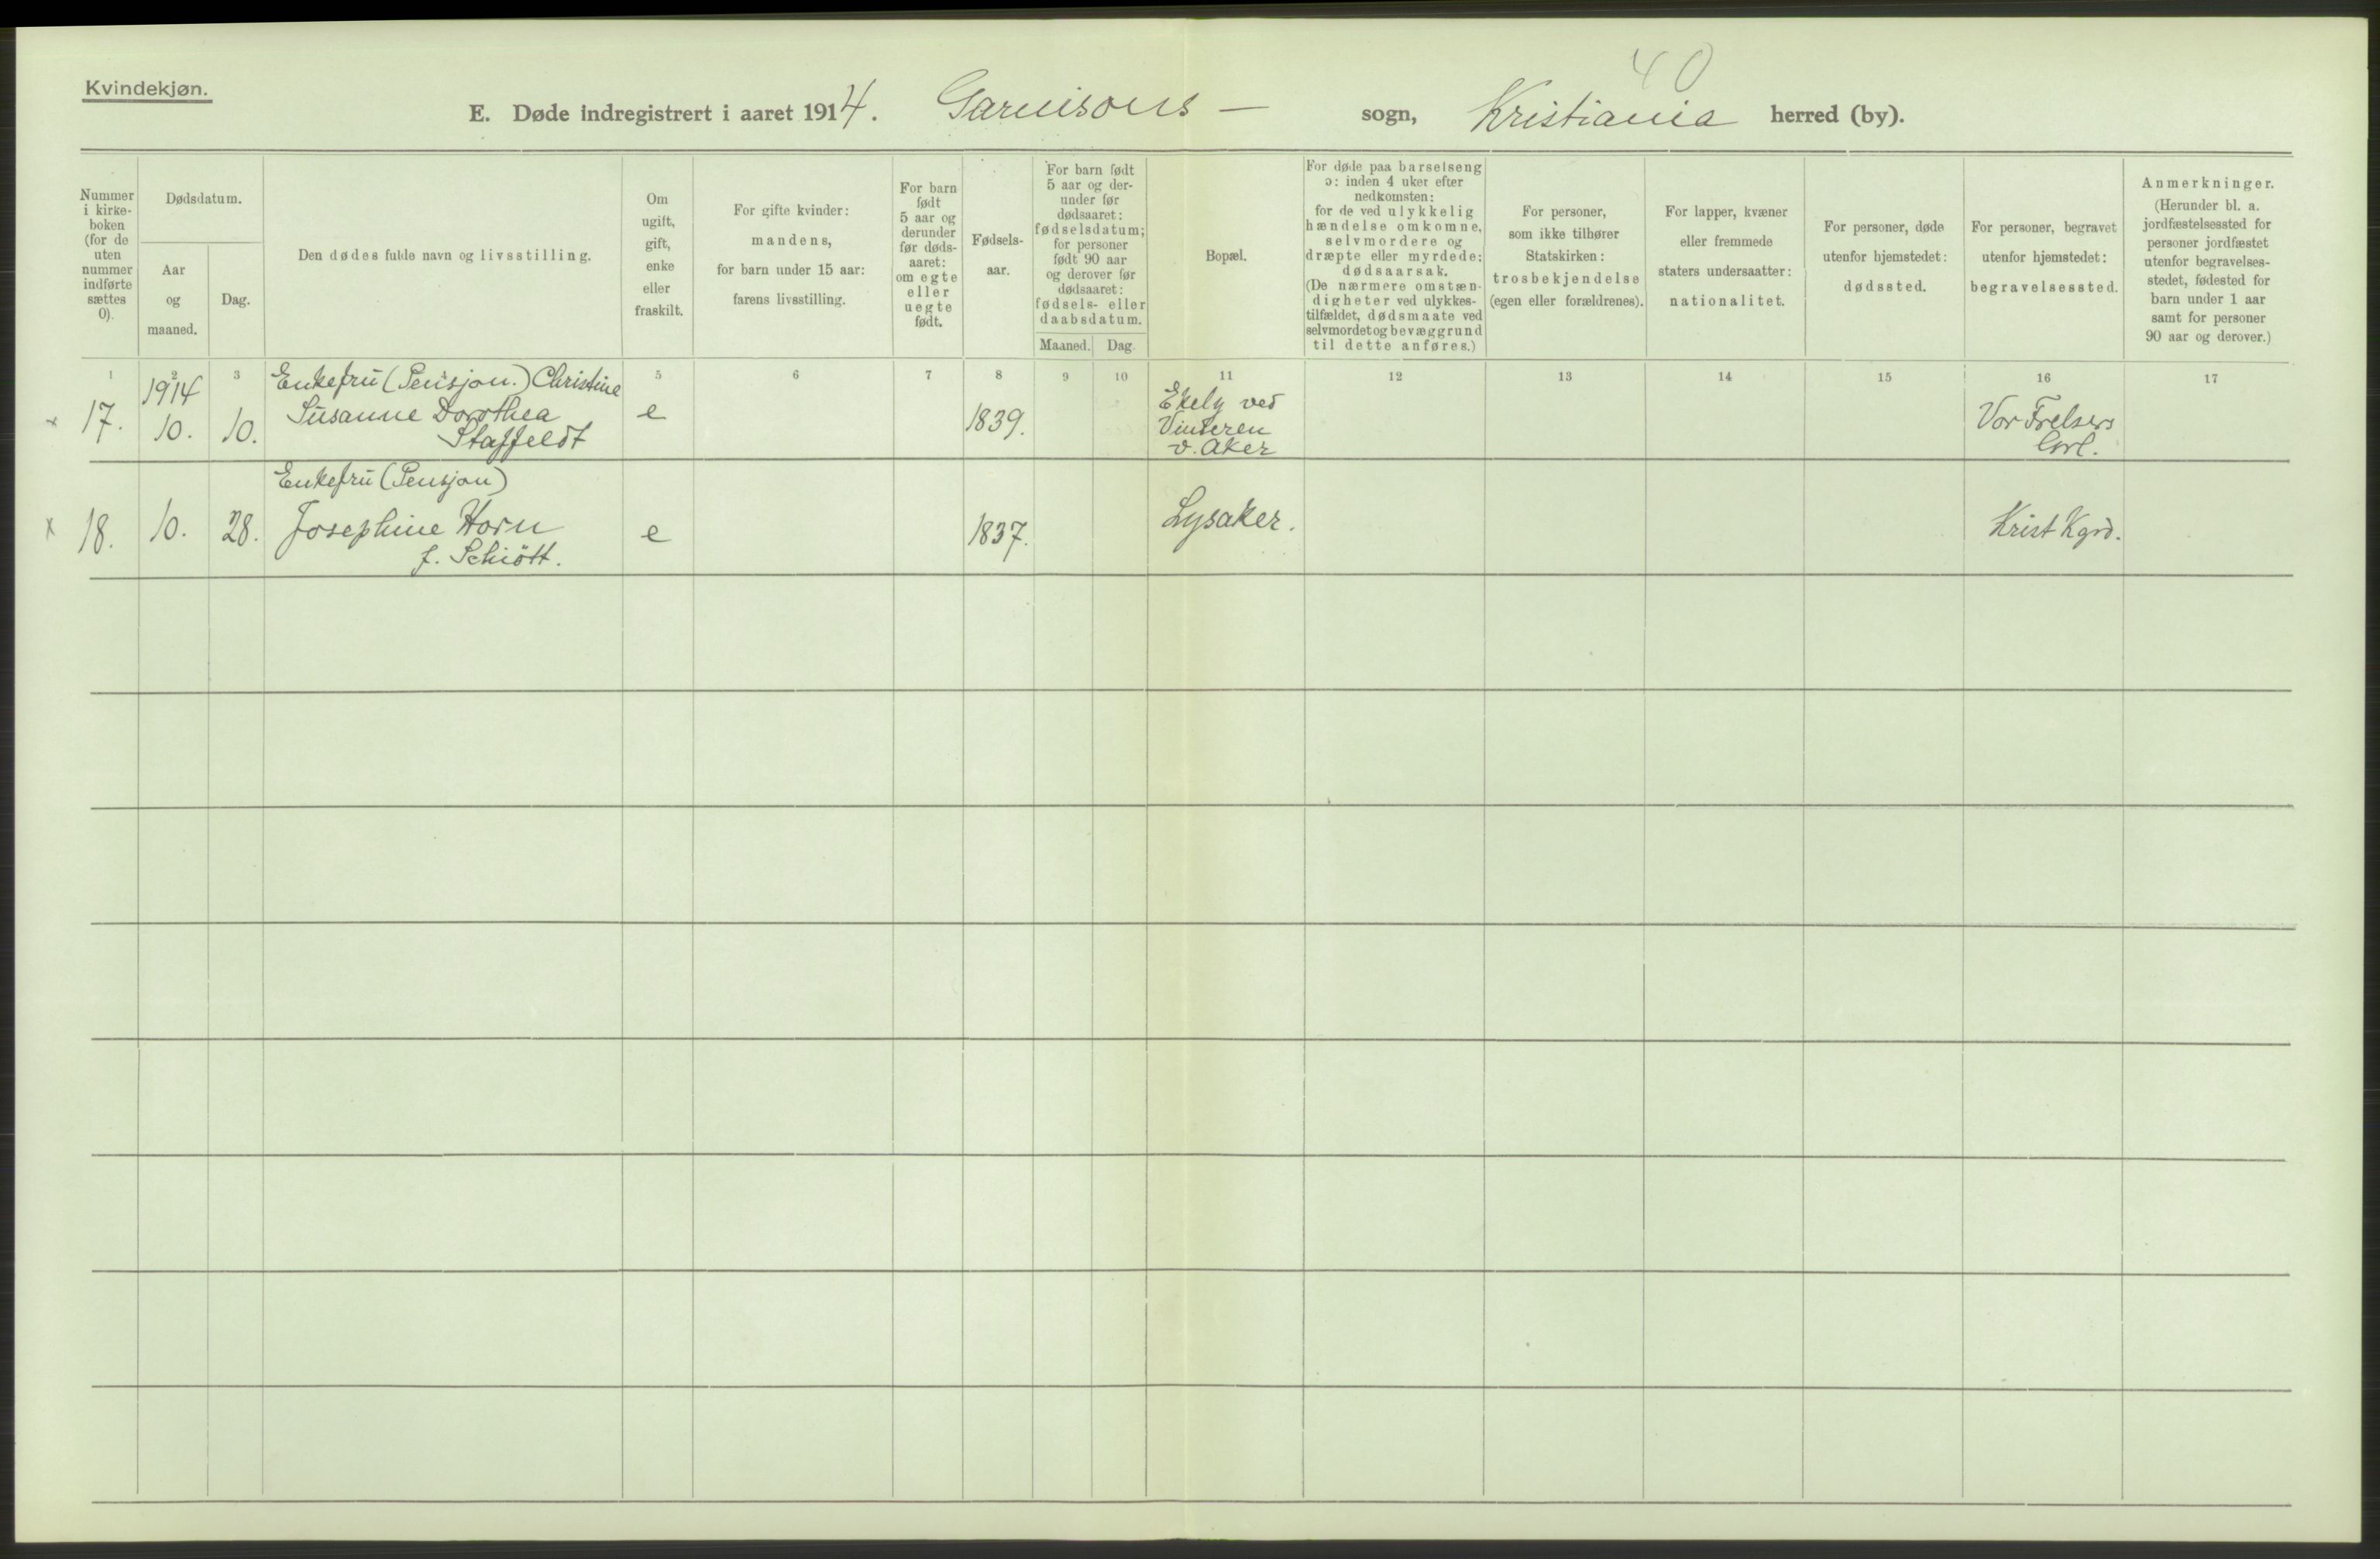 40
Kvindekjøn.
E. Døde indregistrert i aaret 1914. Garnisons — sogn, Kristiania herred (by).
Nummer
i kirke-
boken
(for de
uten
nummer
indførte
sættes
0).
Dødsdatum.
Aar
og
maaned.
Dag.
Den dødes fulde navn og livsstilling.
Om
ugift,
gift,
enke
eller
fraskilt.
For gifte kvinder:
mandens,
for barn under 15 aar:
farens livsstilling.
For barn
født
5 aar og
derunder
før døds-
aaret:
om egte
eller
uegte
født.
Fødsels-
aar.
For barn født
5 aar og der-
under før
dødsaaret:
fødselsdatum;
for personer
født 90 aar
og derover før
dødsaaret:
fødsels- eller
daabsdatum.
Maaned. Dag.
Bopæl.
For døde paa barselseng
ɔ: inden 4 uker efter
nedkomsten:
for de ved ulykkelig
hændelse omkomne,
selvmordere og
dræpte eller myrdede:
dødsaarsak.
(De nærmere omstæn-
digheter ved ulykkes-
tilfældet, dødsmaate ved
selvmordet og bevæggrund
til dette anføres.)
For personer,
som ikke tilhører
Statskirken:
trosbekjendelse
(egen eller forældrenes).
For lapper, kvæner
eller fremmede
staters undersaatter:
nationalitet.
For personer, døde
utenfor hjemstedet:
dødssted.
For personer, begravet
utenfor hjemstedet:
begravelsessted.
Anmerkninger.
(Herunder bl. a.
jordfæstelsessted for
personer jordfæstet
utenfor begravelses-
stedet, fødested for
barn under 1 aar
samt for personer
90 aar og derover.)
1 2 3 5 6 7 8 9 10 11 12 13 14 15 16 17
x 17.
1914
10.
10.
Enkefrü (Pensjon.) Christine
Süsanne Dorothea
Staffeldt
e
1839.
Ekely ved
Vinderen
v. Aker
Vor Frelsers
x 18.
10.
28.
Enkefrü (Pensjon)
Josephine Horn
f. Schiött.
e
1837.
Lysaker.
Krist Kgrd.